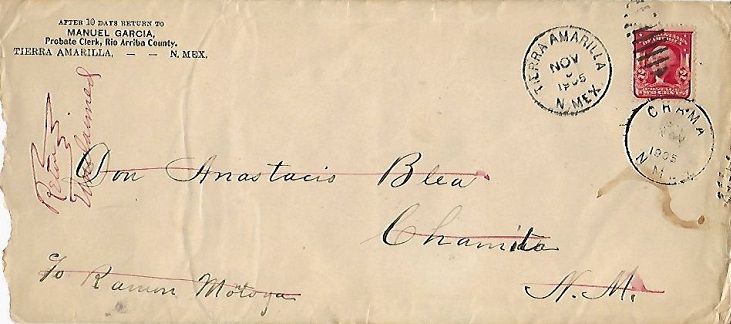 AFTER 10 DAYS RETURN TO
MANUEL GARCIA,
Probate Clerk, Rio Arriba County.
TIERRA AMARILLA, — — N. MEX.
TIERRA AMARILLA
NOV
1905
N. MEX.
CHAMA
1905
N
Unclaimed
Don Anastacio Blea
Chamita
N. M.
c/o Ramon Motoya